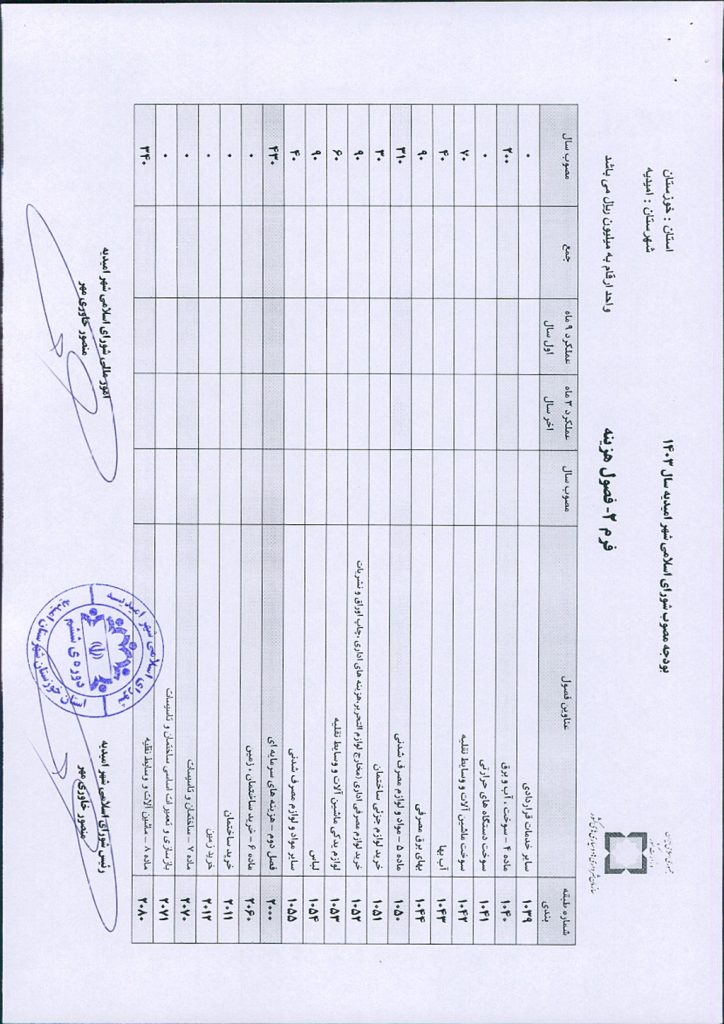 جمهوری اسلامی ایران
وزارت کشور
سازمان شهرداری ها و دهیاری های کشور
بودجه مصوب شورای اسلامی شهر امیدیه سال ۱۴۰۳
استان : خوزستان
شهرستان : امیدیه
فرم ۲- فصول هزینه
واحد ارقام به میلیون ریال می باشد
شماره طبقه بندی عناوین فصول مصوب سال عملکرد ۳ ماه اخر سال عملکرد ۹ ماه اول سال جمع مصوب سال
۱۰۳۹ سایر خدمات قراردادی ۰
۱۰۴۰ ماده ۴ – سوخت ، آب و برق ۲۰۰
۱۰۴۱ سوخت دستگاه های حرارتی ۰
۱۰۴۲ سوخت ماشین آلات و وسایط نقلیه ۷۰
۱۰۴۳ آب بها ۴۰
۱۰۴۴ بهای برق مصرفی ۹۰
۱۰۵۰ ماده ۵ – مواد و لوازم مصرف شدنی ۳۱۰
۱۰۵۱ خرید لوازم جزئی ساختمان ۳۰
۱۰۵۲ خرید لوازم مصرفی اداری (مخارج لوازم التحریر،هزینه های اداری ،چاپ اوراق و نشریات ۹۰
۱۰۵۳ لوازم یدکی ماشین آلات و وسایط نقلیه ۶۰
۱۰۵۴ لباس ۹۰
۱۰۵۵ سایر مواد و لوازم مصرف شدنی ۴۰
۲۰۰۰ فصل دوم – هزینه های سرمایه ای ۴۳۰
۲۰۶۰ ماده ۶ – خرید ساختمان ، زمین ۰
۲۰۱۱ خرید ساختمان ۰
۲۰۱۲ خرید زمین ۰
۲۰۷۰ ماده ۷ – ساختمان و تاسیسات ۰
۲۰۷۱ بازسازی و تعمیرات اساسی ساختمان و تاسیسات ۰
۲۰۸۰ ماده ۸ – ماشین آلات و وسایط نقلیه ۳۴۰
رئیس شورای اسلامی شهر امیدیه
منصور خاوری مهر
امور مالی شورای اسلامی شهر امیدیه
منصور خاوری مهر
شورای اسلامی شهر امیدیه
دوره ی ششم
استان خوزستان شهرستان امیدیه